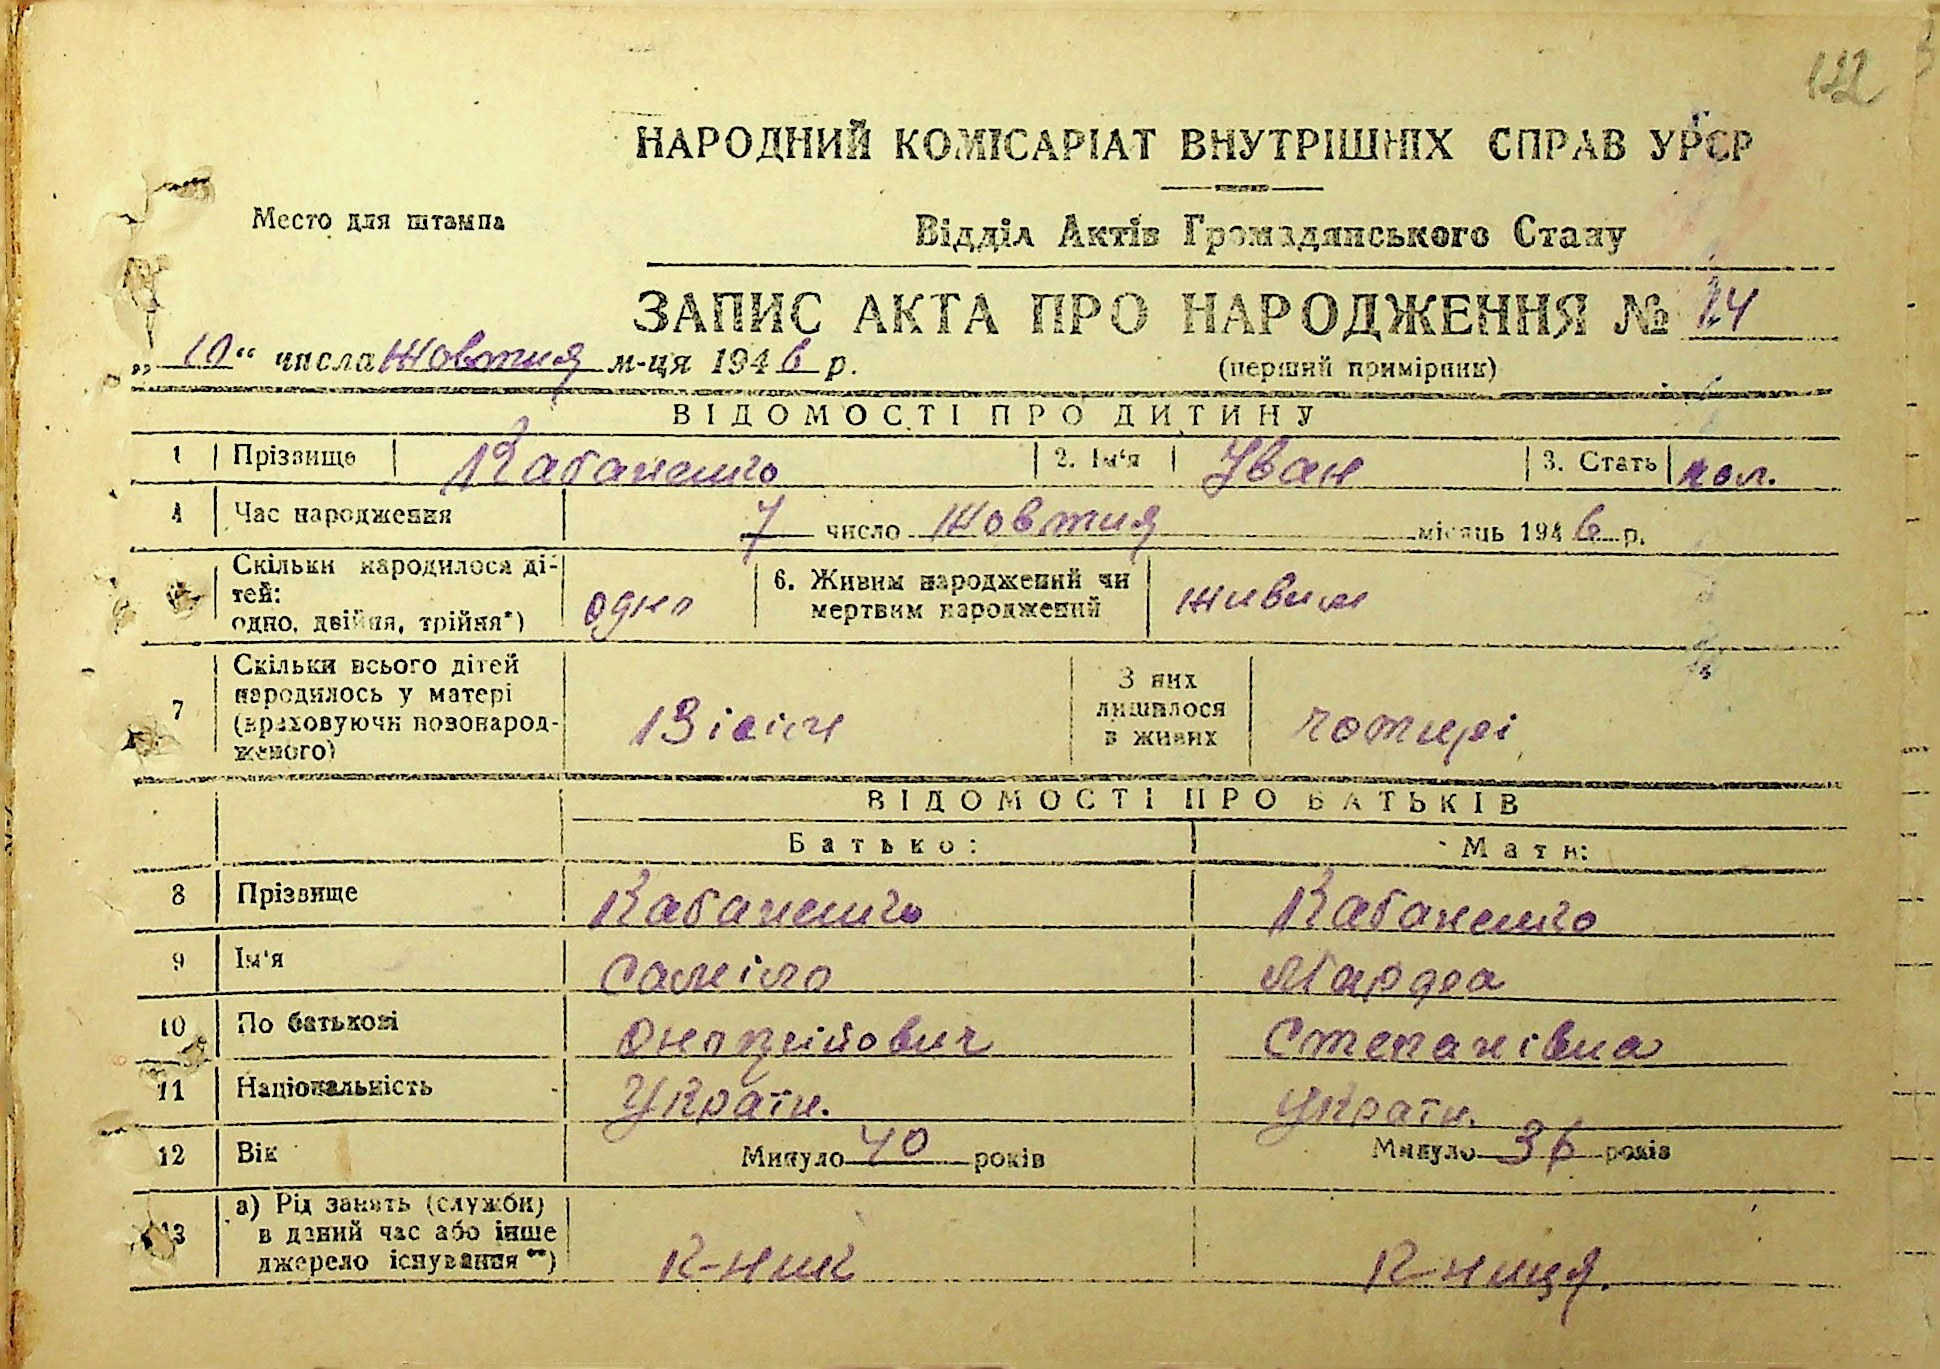 122
НАРОДНИЙ КОМІСАРІАТ ВНУТРІШНІХ СПРАВ УРСР
Место для штампа
Відділ Актів Громадянського Стану
ЗАПИС АКТА ПРО НАРОДЖЕННЯ № 24
„10" числа Жовтня м-ця 1946 р.
(перший примірник)
ВІДОМОСТІ ПРО ДИТИНУ
1 Прізвище Кабаненко 2. Ім'я Іван 3. Стать чол.
4 Час народження 7 число Жовтня місяць 1946 р.
Скільки народилося ді-
тей:
одно, двійня, трійня*) одно
6. Живим народжений чи
мертвим народжений живим
7 Скільки всього дітей
народилось у матері
(враховуючи новонарод-
женого) Вісім
З них
лишилося
в живих чотирі
ВІДОМОСТІ ПРО БАТЬКІВ
Батько: Мати:
8 Прізвище Кабаненко Кабаненко
9 Ім'я Саміло Марфа
10 По батькові Онопрійович Степанівна
11 Національність Україн. Україн.
12 Вік Минуло 40 років Минуло 36 років
13 а) Рід занять (служби)
в даний час або інше
джерело існування**) К-ник К-ниця.